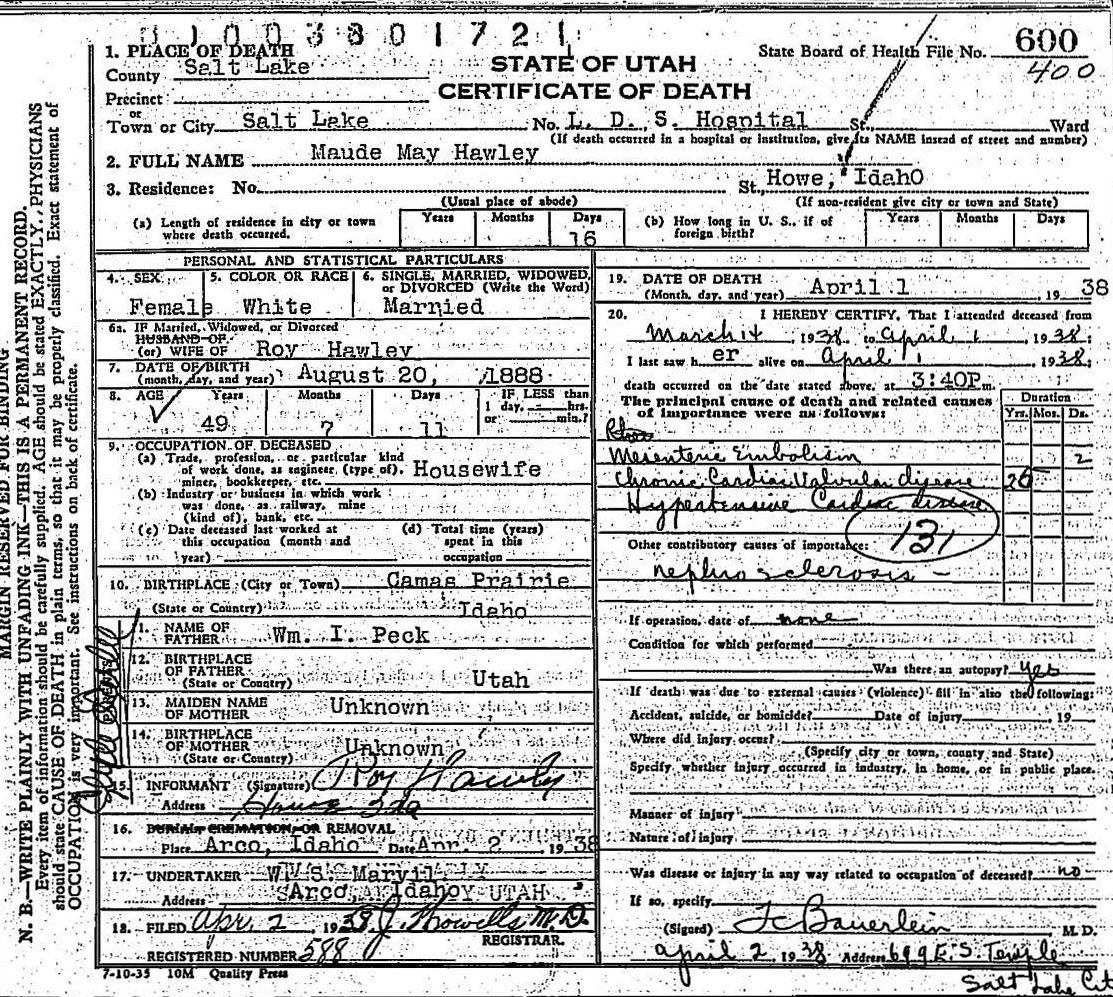 31003801721
1. PLACE OF DEATH
County Salt Lake
Precinct
or
Town or City Salt Lake No. L. D. S. Hospital St., Ward
(If death occurred in a hospital or institution, give its NAME insead of street and number)
STATE OF UTAH
CERTIFICATE OF DEATH
State Board of Health File No. 600
400
2. FULL NAME Maude May Hawley
3. Residence: No. St., Howe, IdahO
(Usual place of abode) (If non-resident give city or town and State)
(a) Length of residence in city or town where death occurred. Years Months Days 16
(b) How long in U. S., if of foreign birth? Years Months Days
PERSONAL AND STATISTICAL PARTICULARS
4. SEX Female
5. COLOR OR RACE White
6. SINGLE, MARRIED, WIDOWED, or DIVORCED (Write the Word) Married
6a. IF Married, Widowed, or Divorced
HUSBAND OF
(or) WIFE OF Roy Hawley
7. DATE OF BIRTH
(month, day, and year) August 20, 1888
8. AGE Years Months Days IF LESS than
49 7 11 1 day, hrs.
or min.?
9. OCCUPATION OF DECEASED
(a) Trade, profession, or particular kind
of work done, as engineer, (type of), Housewife
miner, bookkeeper, etc.
(b) Industry or business in which work
was done, as railway, mine
(kind of), bank, etc.
(c) Date deceased last worked at
this occupation (month and
year)
(d) Total time (years)
spent in this
occupation
10. BIRTHPLACE (City or Town) Camas Prairie
(State or Country) Idaho
11. NAME OF
FATHER Wm. I. Peck
12. BIRTHPLACE
OF FATHER
(State or Country) Utah
13. MAIDEN NAME
OF MOTHER Unknown
14. BIRTHPLACE
OF MOTHER
(State or Country) Unknown
15. INFORMANT (Signature) Roy Hawley
Address Howe Ida
16. BURIAL CREMATION OR REMOVAL
Place Arco, Idaho Date Apr. 2 1938
17. UNDERTAKER Wm S. Marvil
Address Arco, Idaho UTAH
18. FILED Apr. 2 1938 J. Howells M.D.
REGISTRAR.
REGISTERED NUMBER 588
7-10-35 10M Quality Press
19. DATE OF DEATH
(Month, day, and year) April 1, 1938
20. I HEREBY CERTIFY, That I attended deceased from
March 14, 1938, to April 1, 1938;
I last saw her alive on April 1, 1938,
death occurred on the date stated above, at 3:40P m.
The principal cause of death and related causes
of importance were as follows:
Duration
Yrs. Mos. Ds.
Mesenteric Embolism 2
Chronic Cardiac Valvular disease
Hypertensive Cardiac disease
131
Other contributory causes of importance:
nephrosclerosis -
If operation, date of none
Condition for which performed
Was there an autopsy? yes
If death was due to external causes (violence) fill in also the following:
Accident, suicide, or homicide? Date of injury , 19
Where did injury occur?
(Specify city or town, county and State)
Specify whether injury occurred in industry, in home, or in public place.
Manner of injury
Nature of injury
Was disease or injury in any way related to occupation of deceased? no
If so, specify
(Signed) F C Bauerlein M. D.
April 2, 1938 Address 699 E. S. Temple
Salt Lake City
MARGIN RESERVED FOR BINDING
N. B.—WRITE PLAINLY WITH UNFADING INK—THIS IS A PERMANENT RECORD.
Every item of information should be carefully supplied. AGE should be stated EXACTLY. PHYSICIANS
should state CAUSE OF DEATH in plain terms, so that it may be properly classified. Exact statement of
OCCUPATION is very important. See instructions on back of certificate.